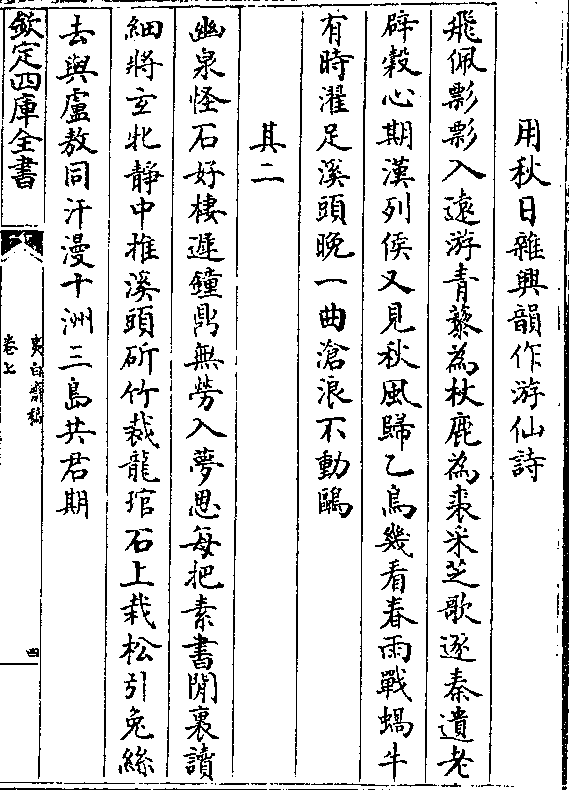 用秋日雜興韻作游仙詩
飛佩彯彯入遠游青藜為杖鹿為裘采芝歌逐秦遺老
辟穀心期漢列侯又見秋風歸乙鳥幾看春雨戰蝸牛
有時濯足溪頭晚一曲滄浪不動鷗
其二
幽泉怪石好棲遲鐘鼎無勞入夢思每把素書閒裏讀
細將玄牝靜中推溪頭斫竹裁龍琯石上栽松引兔絲
去與盧敖同汗漫十洲三島共君期
欽定四庫全書
夷白齋稿
卷七
四